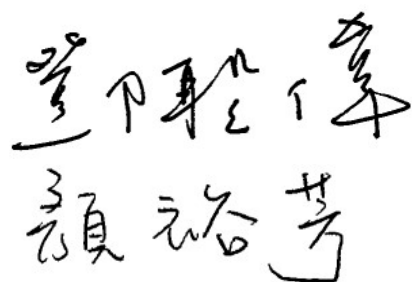 鄧聖偉
顏裕芳